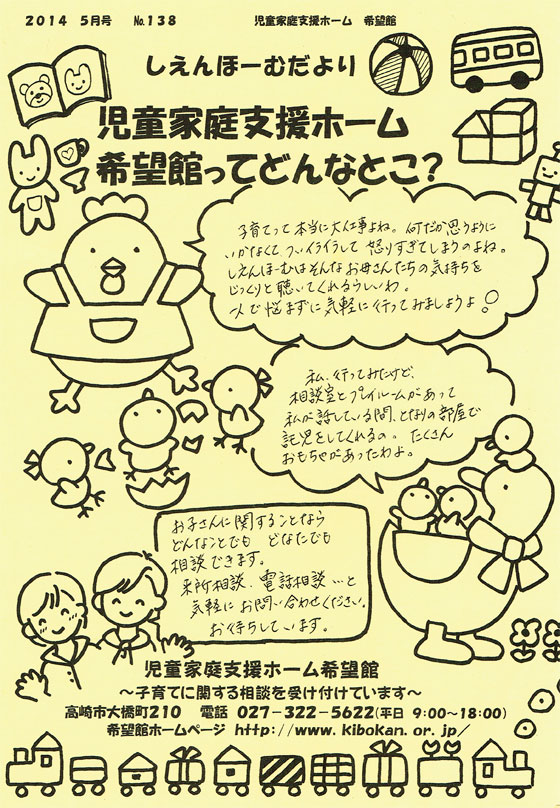 2014 5月号 No.138 児童家庭支援ホーム 希望館
しえんほーむだより
児童家庭支援ホーム
希望館ってどんなとこ?
子育てって本当に大仕事よね。何だか思うように
いかなくて、ついイライラして怒りすぎてしまうのよね。
しえんほーむはそんなお母さんたちの気持ちを
じっくりと聴いてくれるらしいわ。
一人で悩まずに気軽に行ってみましょうよ○
私、行ってみたけど、
相談室とプレイルームがあって
私が話している間、となりの部屋で
託児をしてくれるの。たくさん
おもちゃがあったわよ。
お子さんに関することなら
どんなことでも どなたでも
相談できます。
来所相談、電話相談…と
気軽にお問い合わせください。
お待ちしています。
児童家庭支援ホーム希望館
〜子育てに関する相談を受け付けています〜
高崎市大橋町210 電話 027-322-5622(平日 9:00〜18:00)
希望館ホームページ http://www.kibokan.or.jp/